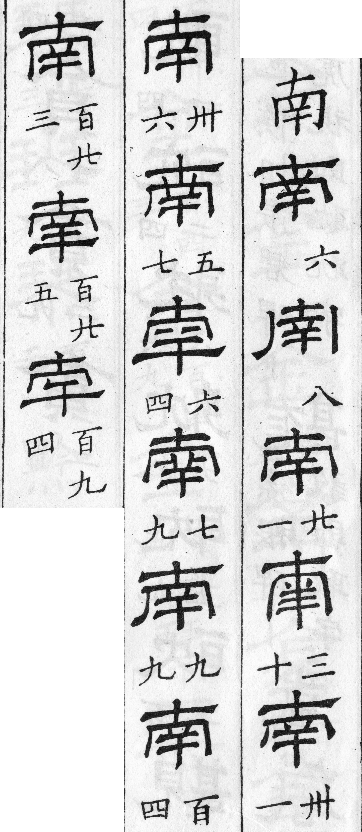 南南六南八南廿一南三十南卅一
南卅六南五七南六四南七九南九九南百四
南百廿三南百廿五南百九四